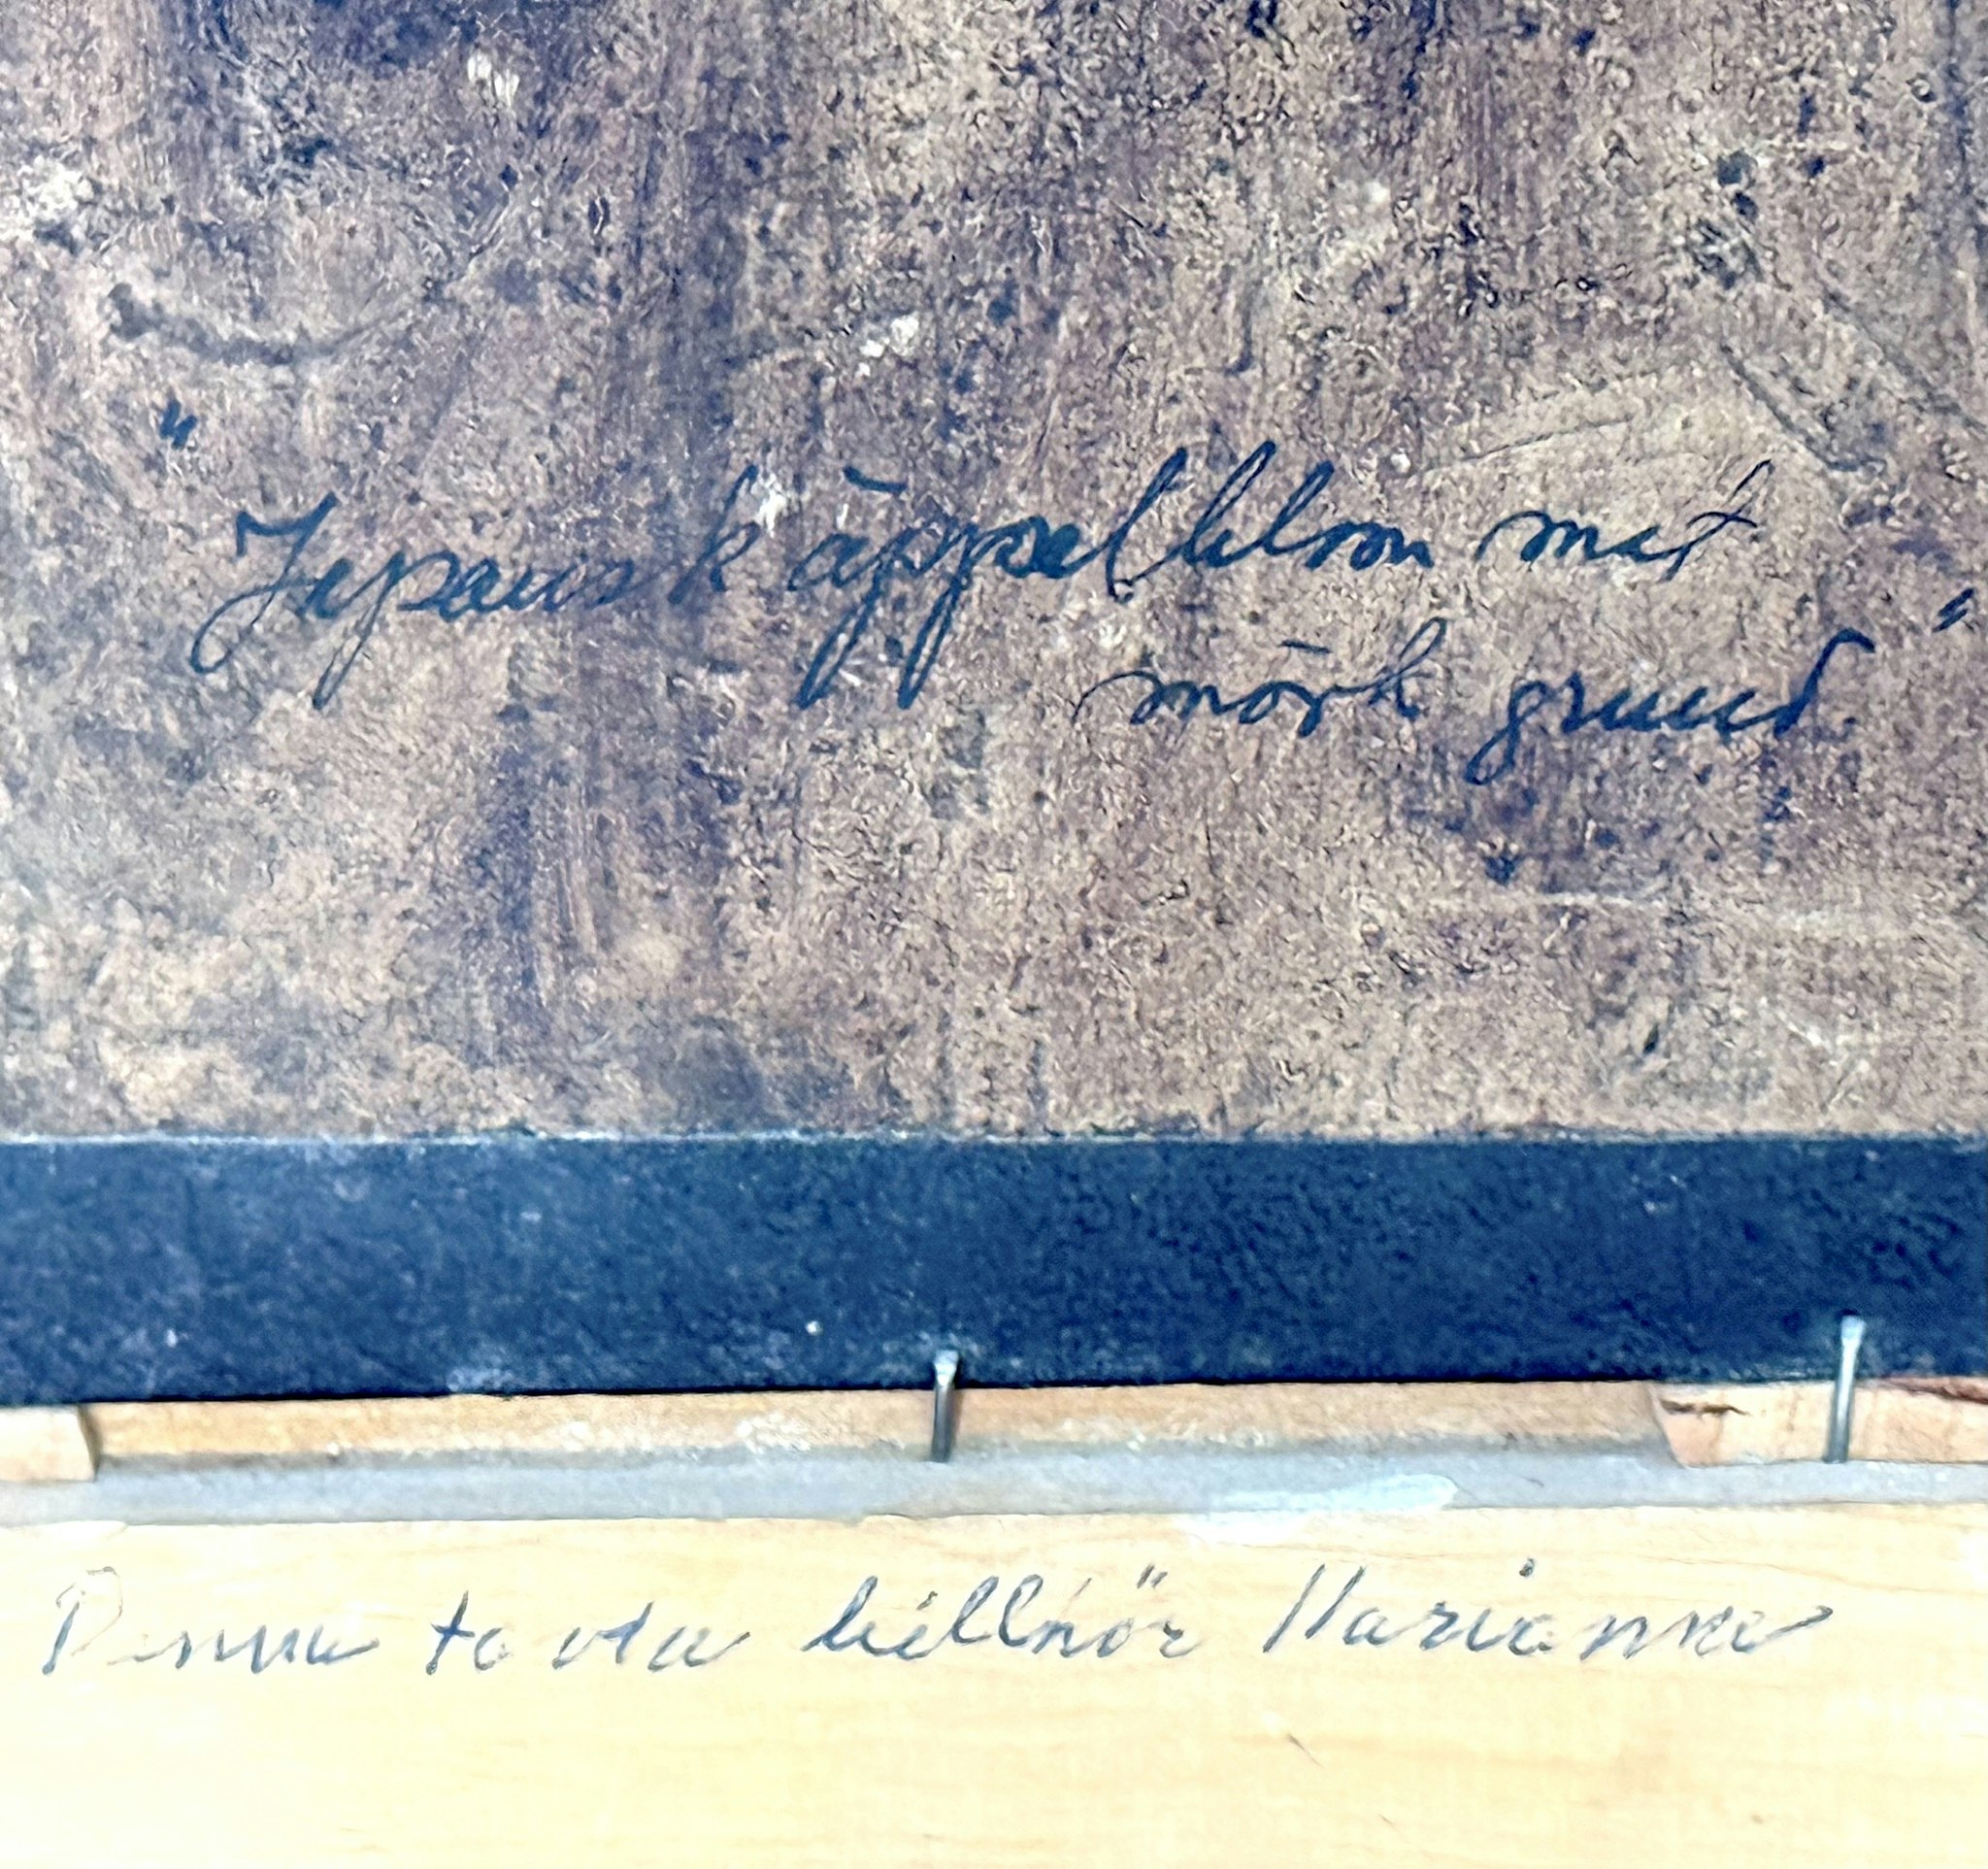 "Japansk äppelblom mot
mörk grund"
Denna tavla tillhör Marianne